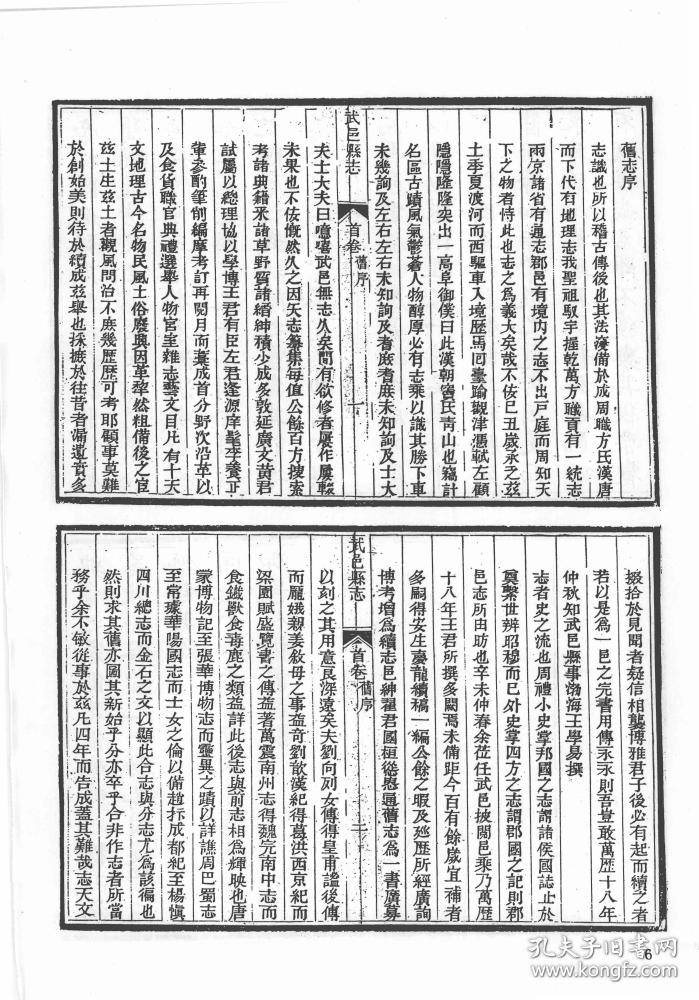 舊志序
志識也所以稽古傳後也其法濅備於成周職方氏漢唐
而下代有地理志我聖祖馭宇握乾萬方職貢有一統志
兩京諸省有通志郡邑有境内之志不出戸庭而周知天
下之物者恃此也志之爲義大矣哉不佞已丑歲承乏兹
土季夏渡河而西驅車入境歴馬囘臺踰觀津憑軾左顧
隱隱隆隆突出一高阜御僕曰此漢朝竇氏靑山也竊計
名區古蹟風氣鬱蒼人物醇厚必有志乘以識其勝下車
未幾詢及左右左右未知詢及耆庶耆庶未知詢及士大
武邑縣志
首卷 舊序
一
夫士大夫曰噫嘻武邑無志久矣間有欲修者屢作屢輟
未果也不佞慨然久之因矢志纂集每值公餘百方搜索
考諸典籍釆諸草野質諸縉紳積少成多敦延廣文黄君
試屬以總理協以學博王君有臣左君逢源庠髦李養正
軰參酌筆削編摩考訂再閱月而藁成首分野次沿革以
及食貨職官典禮選舉人物宮室雜志藝文目凡有十天
文地理古今名物民風土俗廢興因革犂然粗備後之宦
兹土生兹土者觀風問治不庶幾歴歴可考耶顧事莫難
於創始美則待於續成兹舉也採摭於往昔者漏遺實多
掇拾於見聞者疑信相襲博雅君子後必有起而續之者
若以是爲一邑之完書用傳永永則吾豈敢萬歴十八年
仲秋知武邑縣事渤海王學易撰
志者史之流也周禮小史掌邦國之志謂諸侯國誌止於
奠繫世辨昭穆而巳外史掌四方之志謂郡國之記則郡
邑志所由昉也辛未仲春余莅任武邑披閱邑乘乃萬歴
十八年王君所撰多闕焉未備距今百有餘歲宜補者
多嗣得安生慶龍續稿一編公餘之暇及廵歴所經廣詢
博考增爲續志邑紳翟君國桓從慂通舊志爲一書廣募
武邑縣志
首卷 舊序
二
以刻之其用意良深遠矣夫劉向列女傳得皇甫謐後傳
而龐娥親姜敘母之事益奇劉歆漢紀得葛洪西京紀而
梁園賦盛覽書之傳益著萬震南州志得魏完南中志而
食鐵獸食毒鹿之類益詳此後志與前志相爲輝映也唐
蒙博物記至張華博物志而靈異之蹟以詳譙周巴蜀志
至常璩華陽國志而士女之倫以備趙抃成都紀至楊愼
四川總志而金石之文以顯此合志與分志尤爲該徧也
然則求其舊亦圖其新始乎分亦卒乎合非作志者所當
務乎余不敏從事於兹凡四年而告成蓋其難哉志天文
6
孔夫子旧书网
www.kongfz.com